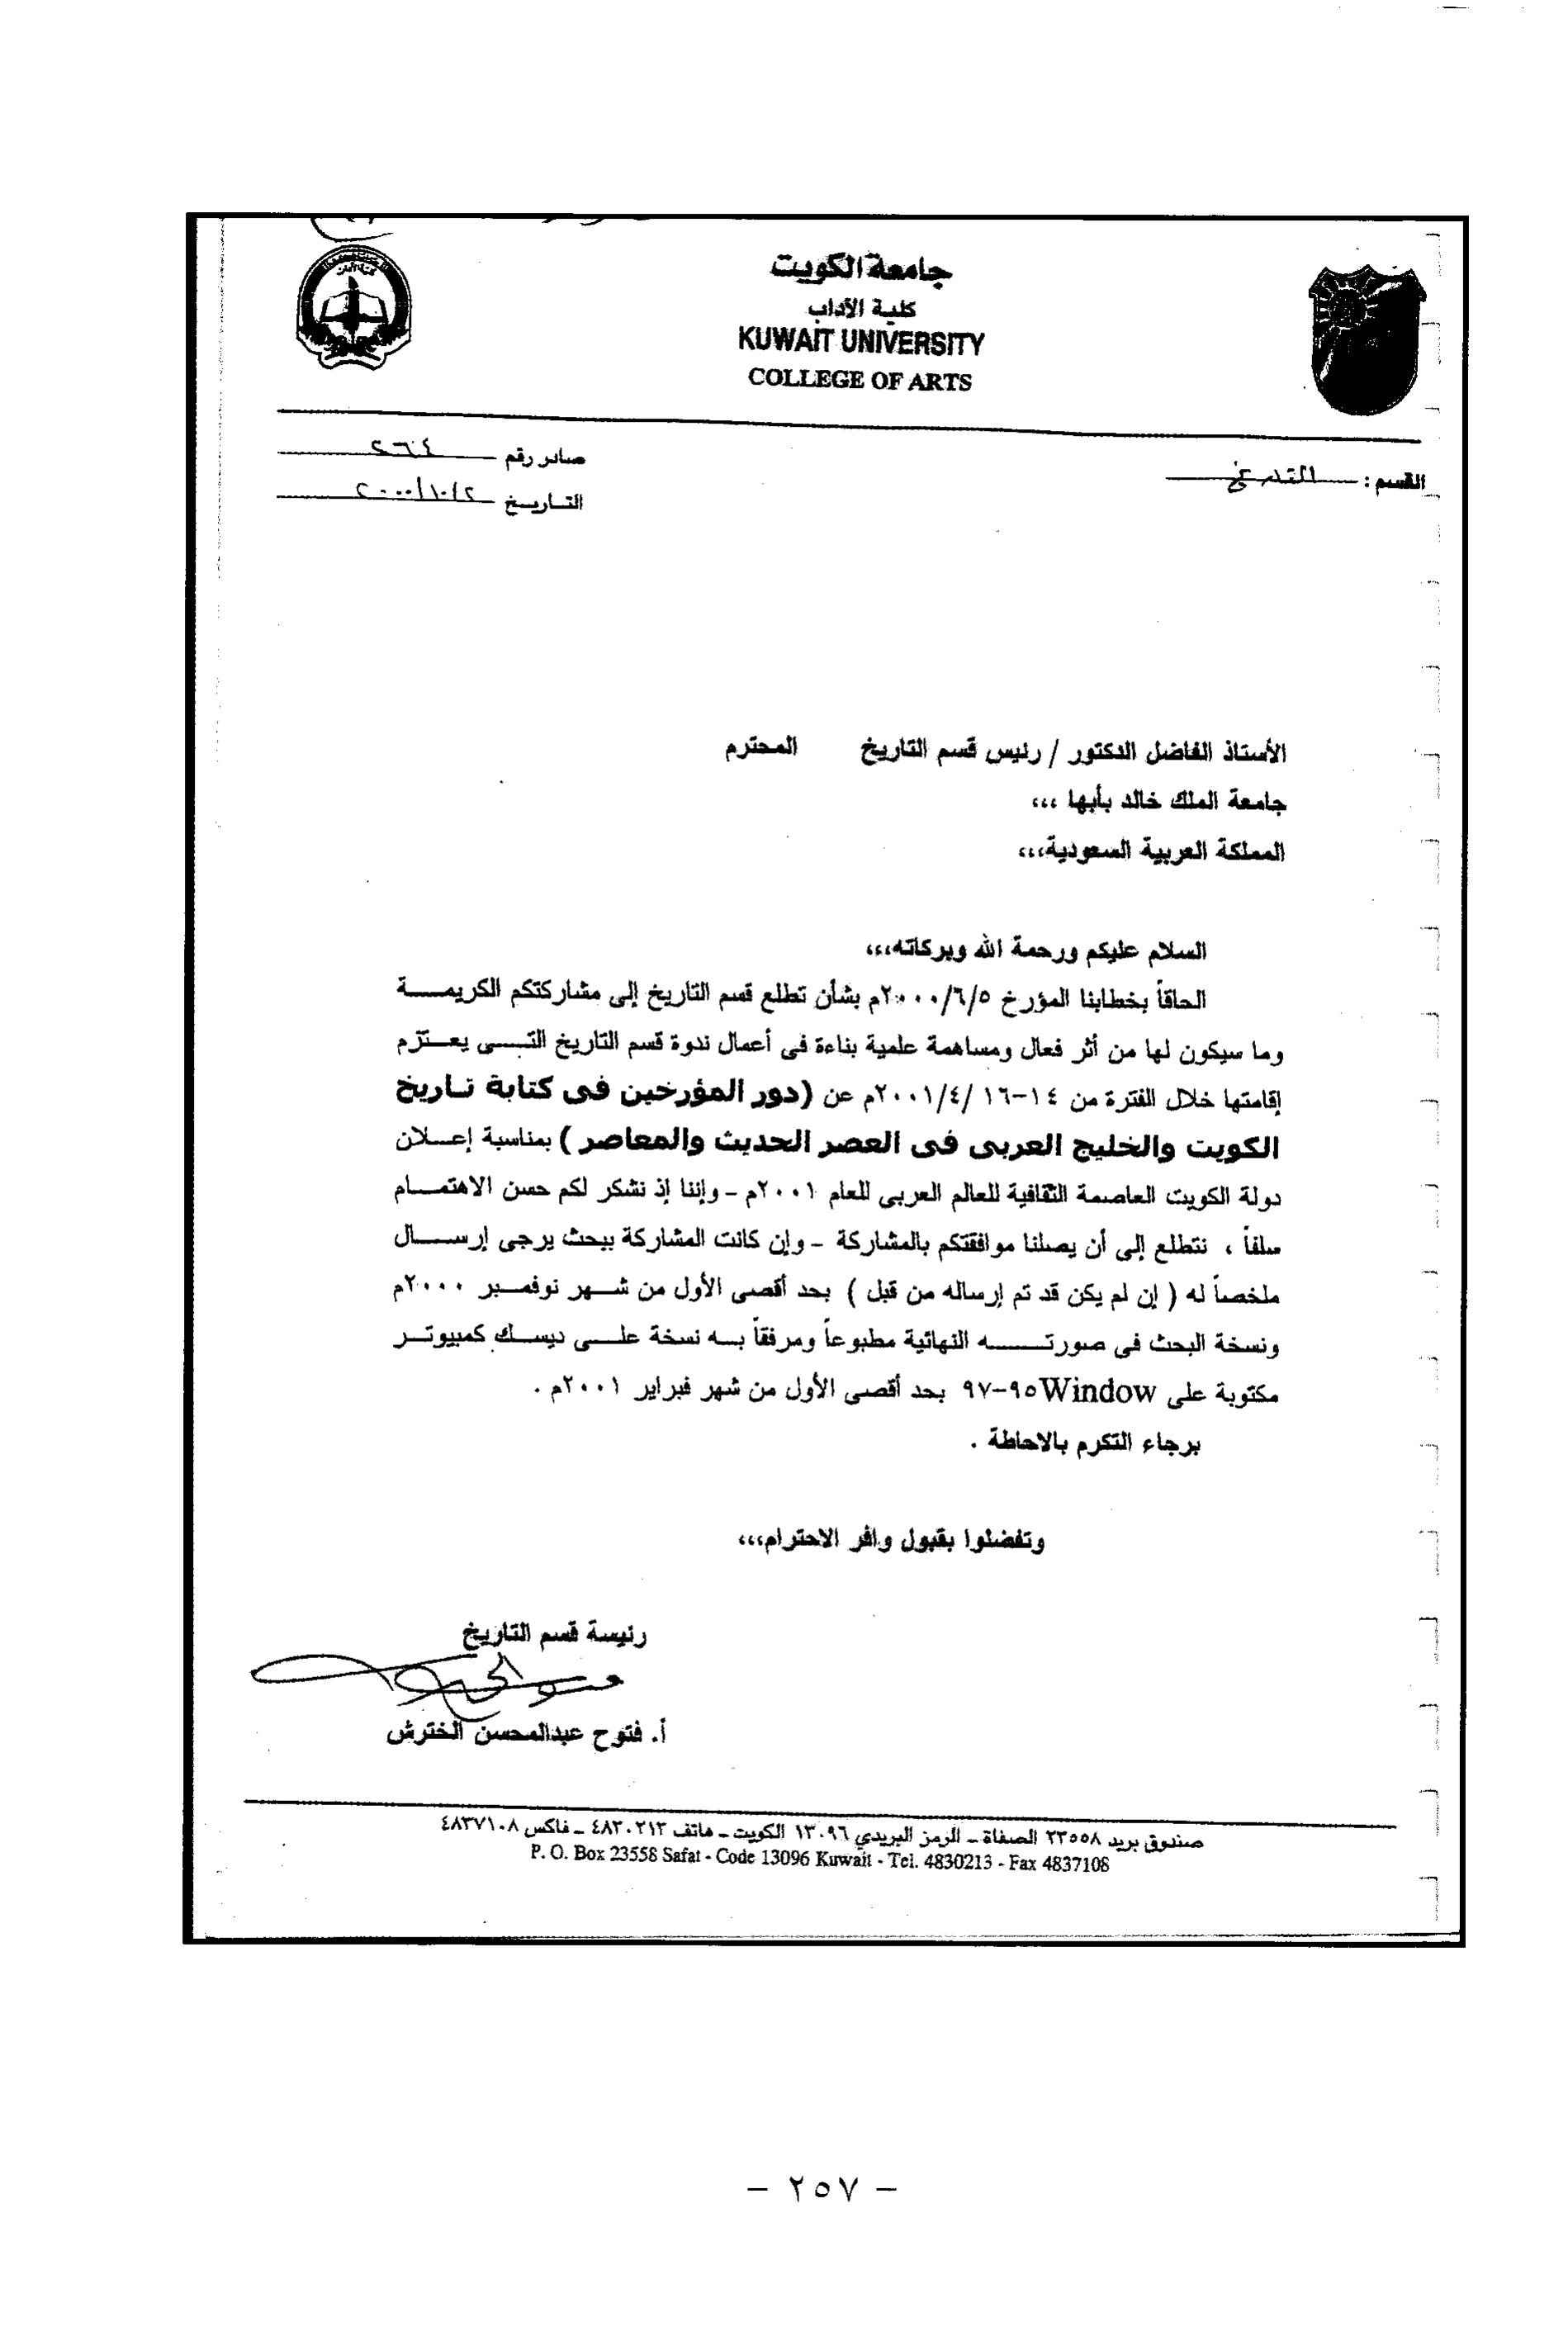 جامعة الكويت
كلية الآداب
KUWAIT UNIVERSITY
COLLEGE OF ARTS
صادر رقم ٢٦٤
القسم : التاريخ
التاريخ ٢٠٠٠/١٠/٢
الأستاذ الفاضل الدكتور / رئيس قسم التاريخ المحترم
جامعة الملك خالد بأبها ،،،
المملكة العربية السعودية،،،
السلام عليكم ورحمة الله وبركاته،،،
الحاقاً بخطابنا المؤرخ ٢٠٠٠/٦/٥م بشأن تطلع قسم التاريخ إلى مشاركتكم الكريمة
وما سيكون لها من أثر فعال ومساهمة علمية بناءة فى أعمال ندوة قسم التاريخ التى يعتزم
إقامتها خلال الفترة من ١٤-١٦ /٢٠٠١/٤م عن (دور المؤرخين فى كتابة تاريخ
الكويت والخليج العربى فى العصر الحديث والمعاصر ) بمناسبة إعلان
دولة الكويت العاصمة الثقافية للعالم العربى للعام ٢٠٠١م - وإننا إذ نشكر لكم حسن الاهتمام
سلفاً ، نتطلع إلى أن يصلنا موافقتكم بالمشاركة - وإن كانت المشاركة ببحث يرجى إرسال
ملخصاً له ( إن لم يكن قد تم إرساله من قبل ) بحد أقصى الأول من شهر نوفمبر ٢٠٠٠م
ونسخة البحث فى صورته النهائية مطبوعاً ومرفقاً به نسخة على ديسك كمبيوتر
مكتوبة على Window٩٥-٩٧ بحد أقصى الأول من شهر فبراير ٢٠٠١م .
برجاء التكرم بالاحاطة .
وتفضلوا بقبول وافر الاحترام،،،
رئيسة قسم التاريخ
أ. فتوح عبدالمحسن الخترش
صندوق بريد ٢٣٥٥٨ الصفاة - الرمز البريدي ١٣٠٩٦ الكويت - هاتف ٤٨٣٠٢١٣ - فاكس ٤٨٣٧١٠٨
P. O. Box 23558 Safat - Code 13096 Kuwait - Tel. 4830213 - Fax 4837108
- ٢٥٧ -